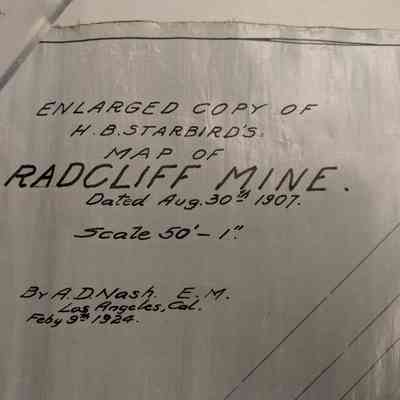 ENLARGED COPY OF
H.B.STARBIRD'S.
MAP OF
RADCLIFF MINE.
Dated Aug. 30th 1907.
Scale 50'- 1".
By A.D.Nash. E.M.
Los Angeles, Cal.
Feby 9th 1924.